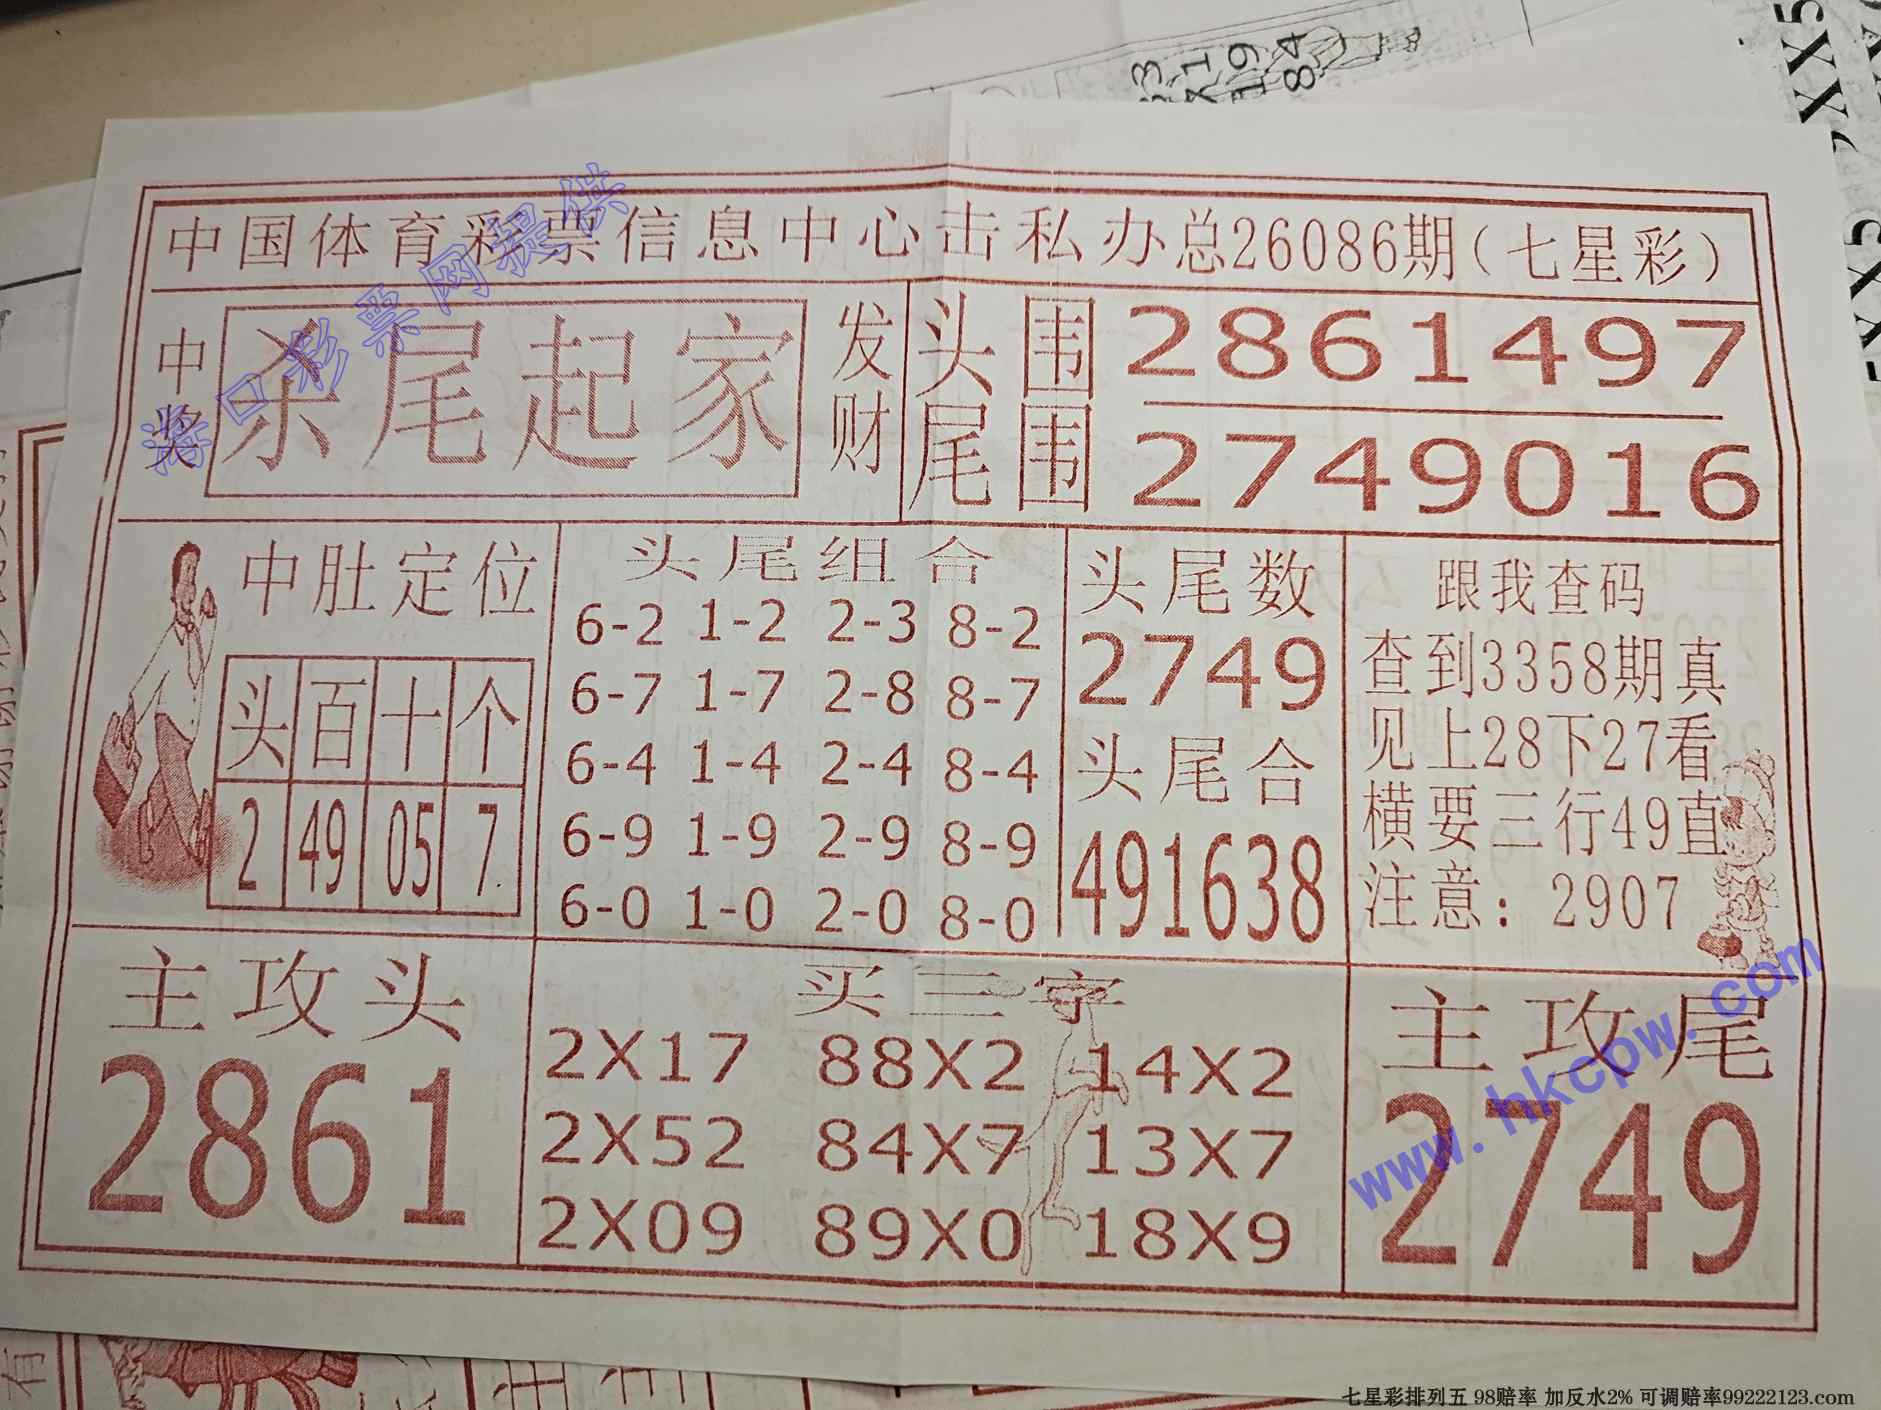 中国体育彩票信息中心击私办总26086期(七星彩)
中奖
杀尾起家
发财
头 围 2861497
尾 围 2749016
中肚定位
头 百 十 个
2 49 05 7
头尾组合
6-2 1-2 2-3 8-2
6-7 1-7 2-8 8-7
6-4 1-4 2-4 8-4
6-9 1-9 2-9 8-9
6-0 1-0 2-0 8-0
头尾数
2749
头尾合
491638
跟我查码
查到3358期真
见上28下27看
横要三行49直
注意：2907
主攻头
2861
买三字
2X17 88X2 14X2
2X52 84X7 13X7
2X09 89X0 18X9
主攻尾
2749
海口彩票网提供
www.hkcpw.com
七星彩排列五 98赔率 加反水2% 可调赔率99222123.com